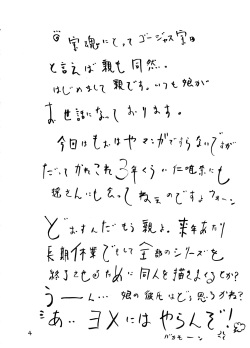 ◎ 宝魂にとってゴージャス宝田
と言えば親も同然。
はじめまして親です。いつも娘が
お世話になっております。
今回はもはやマンガですらないですが
だってかれこれ3年くらい仁唯奈にも
瑶さんにも会ってねェのですよフォーン
どおすんだもう親よ。来年あたり
長期休業でもして全部のシリーズを
終了させるために同人を描きますとか?
うーーん… 娘の彼氏はどう思うかね?
あ…ヨメにはやらんぞ!
バヌモーン
4